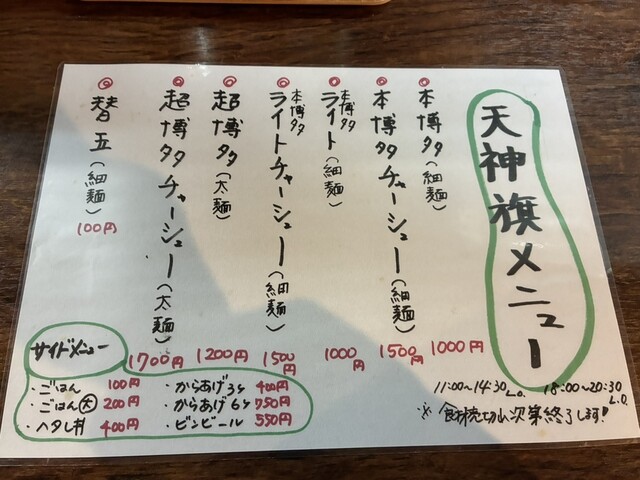 天神旗メニュー
◎本博多(細麺) 1000円
◎本博多チャーシュー(細麺) 1500円
◎本博多ライト(細麺) 1000円
◎本博多ライトチャーシュー(細麺) 1500円
◎超博多(太麺) 1200円
◎超博多チャーシュー(太麺) 1700円
◎替玉(細麺) 100円
サイドメニュー
・ごはん 100円
・ごはん大 200円
・ヘタレ丼 400円
・からあげ3ケ 400円
・からあげ6ケ 750円
・ビンビール 550円
11:00~14:30L.O. 18:00~20:30L.O.
※ 食材売切れ次第終了します!